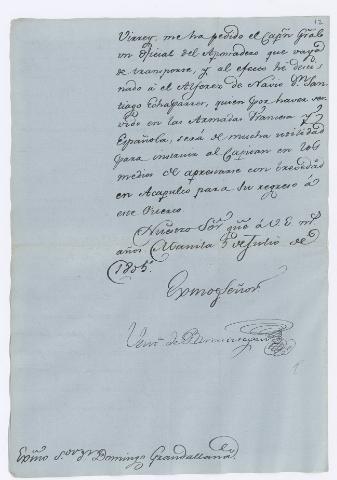 12
Virrey, me ha pedido el Capn Gral
un Oficial del Apostadero que vaya
de transporte, y al efecto he desti-
nado á el Alferez de Navio Dn San-
tiago Echaparre, quien por haver ser-
vido en las Armadas Francesa y
Española, será de mucha utilidad
para instruir al Capitan en los
medios de aprestarse con brevedad
en Acapulco para su regreso á
este Puerto
Nuestro Sor gue á V.E. ms
años Manila 5 de Julio de
1805.
Exmo Señor
Ventra de Barcaiztegui
Exmo Sor Dn Domingo Grandallana